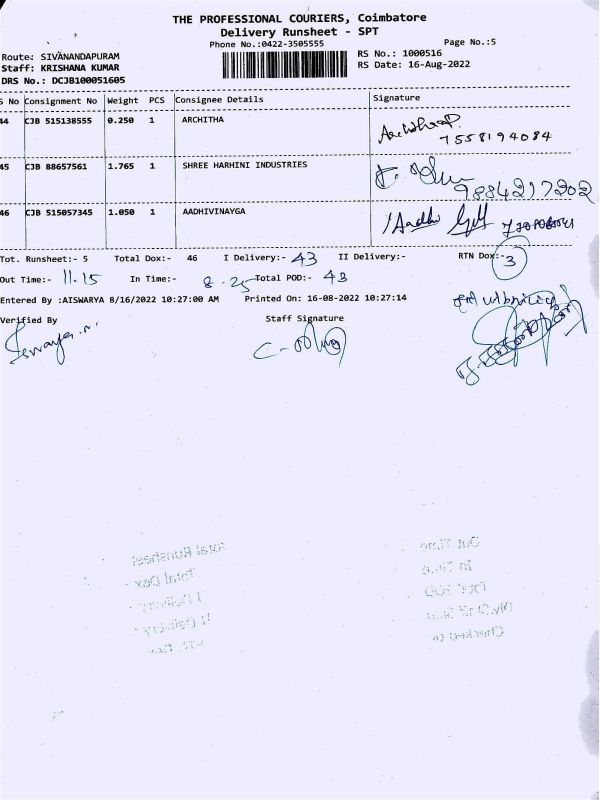 THE PROFESSIONAL COURIERS, Coimbatore
Delivery Runsheet - SPT
Phone No.:0422-3505555
Page No.:5
Route: SIVANANDAPURAM
Staff: KRISHANA KUMAR
DRS No.: DCJB100051605
RS No.: 1000516
RS Date: 16-Aug-2022
S No Consignment No Weight PCS Consignee Details Signature
44 CJB 515138555 0.250 1 ARCHITHA
7558194084
45 CJB 88657561 1.765 1 SHREE HARHINI INDUSTRIES
9884217202
46 CJB 515057345 1.050 1 AADHIVINAYGA Aadhi
Tot. Runsheet:- 5 Total Dox:- 46 I Delivery:- 43 II Delivery:- RTN Dox:- 3
Out Time:- 11.15 In Time:- 8.25 Total POD:- 43
Entered By :AISWARYA 8/16/2022 10:27:00 AM Printed On: 16-08-2022 10:27:14
Verified By Staff Signature
Out Time
Total Runsheet
In Time
Total Dox
Total POD
I Delivery
II Delivery
Checked by